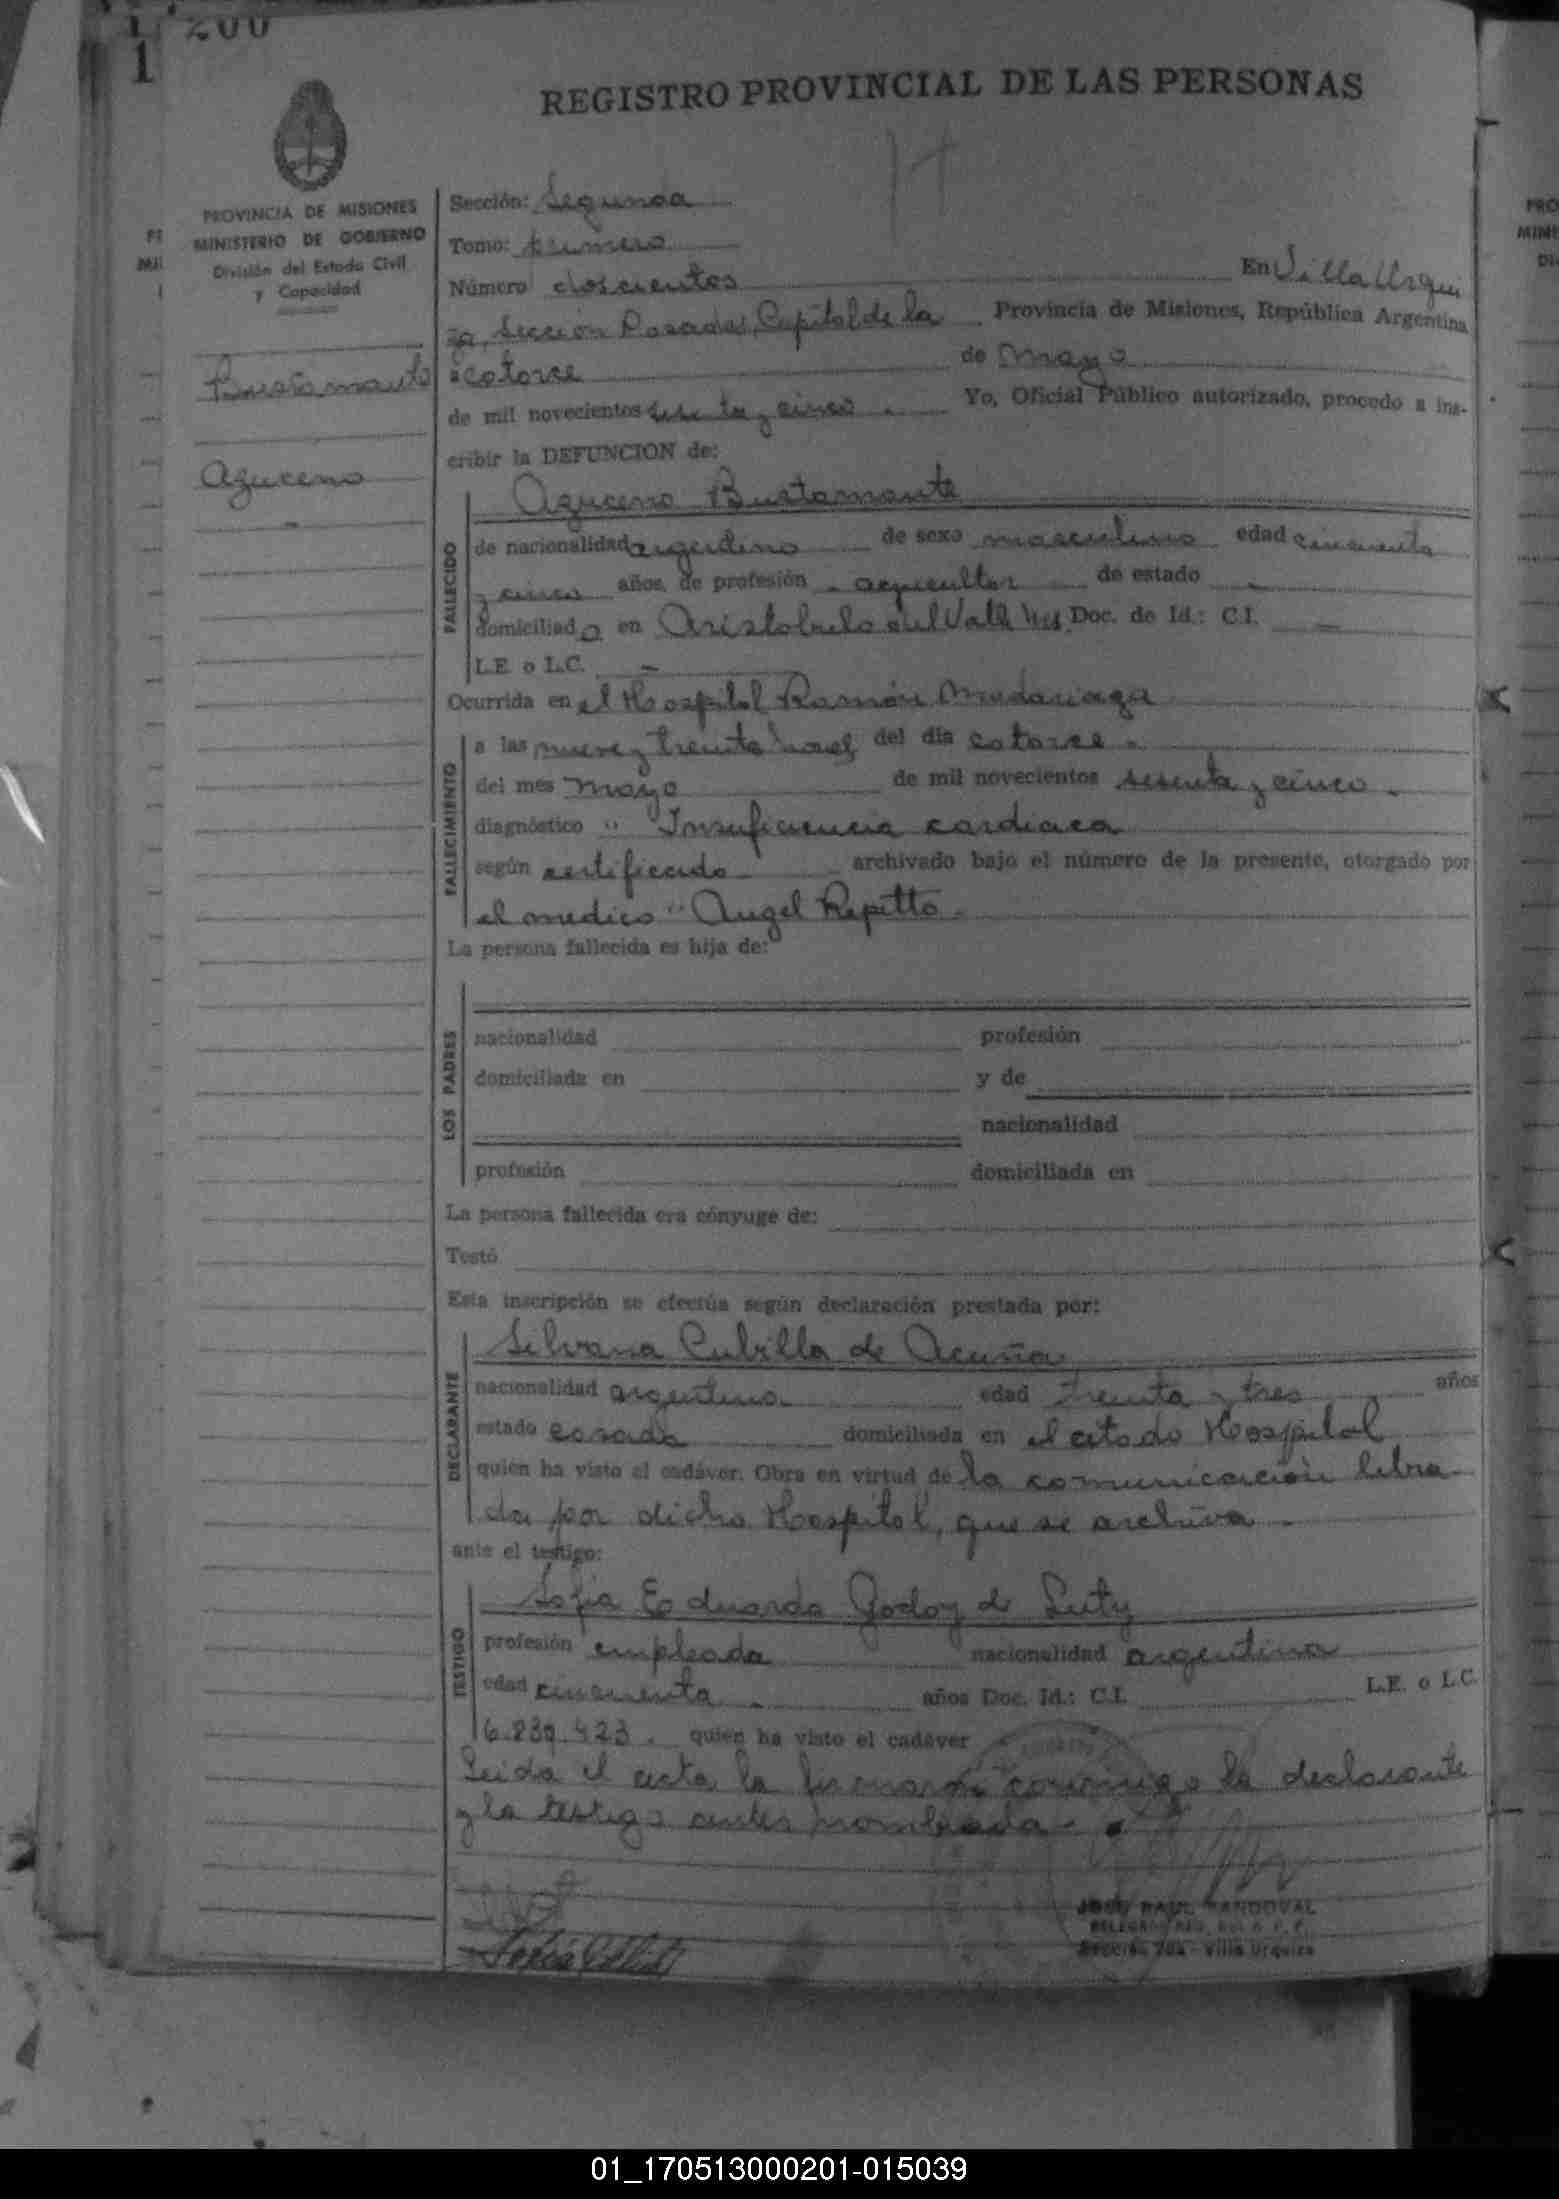 200
1
REGISTRO PROVINCIAL DE LAS PERSONAS
PROVINCIA DE MISIONES
MINISTERIO DE GOBIERNO
División del Estado Civil
y Capacidad
Bustamante
Azuceno
Sección: Segunda
Tomo: primero
Número doscientos En Villa Urqui
za, Sección Posadas, Capital de la Provincia de Misiones, República Argentina
a catorce de Mayo
de mil novecientos sesenta y cinco. Yo, Oficial Público autorizado, procedo a ins-
cribir la DEFUNCION de:
FALLECIDO
Azuceno Bustamante
de nacionalidad argentino de sexo masculino edad cincuenta
y cinco años, de profesión agricultor de estado -
domiciliado en Aristobulo del Valle Mes. Doc. de Id.: C.I. -
L.E. o L.C. -
Ocurrida en el Hospital Ramón Madariaga
FALLECIMIENTO
a las nueve y treinta horas del día catorce.
del mes Mayo de mil novecientos sesenta y cinco.
diagnóstico " Insuficiencia cardiaca
según certificado archivado bajo el número de la presente, otorgado por
el medico " Angel Repitto.
La persona fallecida es hija de:
LOS PADRES
nacionalidad profesión
domiciliada en y de
nacionalidad
profesión domiciliada en
La persona fallecida era cónyuge de:
Testó
Esta inscripción se efectúa según declaración prestada por:
DECLARANTE
Silvana Cubilla de Acuña
nacionalidad argentina edad treinta y tres años
estado casada domiciliada en el citado Hospital
quien ha visto el cadáver. Obra en virtud de la comunicación libra
da por dicho Hospital, que se archiva.
ante el testigo:
TESTIGO
Sofia Eduarda Godoy de
profesión empleada nacionalidad argentina
edad cincuenta. años Doc. Id.: C.I. L.E. o L.C.
6.839.423. quien ha visto el cadáver
Leida el acta, la firmaron conmigo la declarante
y la testigo antes nombrada.
JOSE RAUL SANDOVAL
Sección 2da - Villa Urquiza
01_170513000201-015039